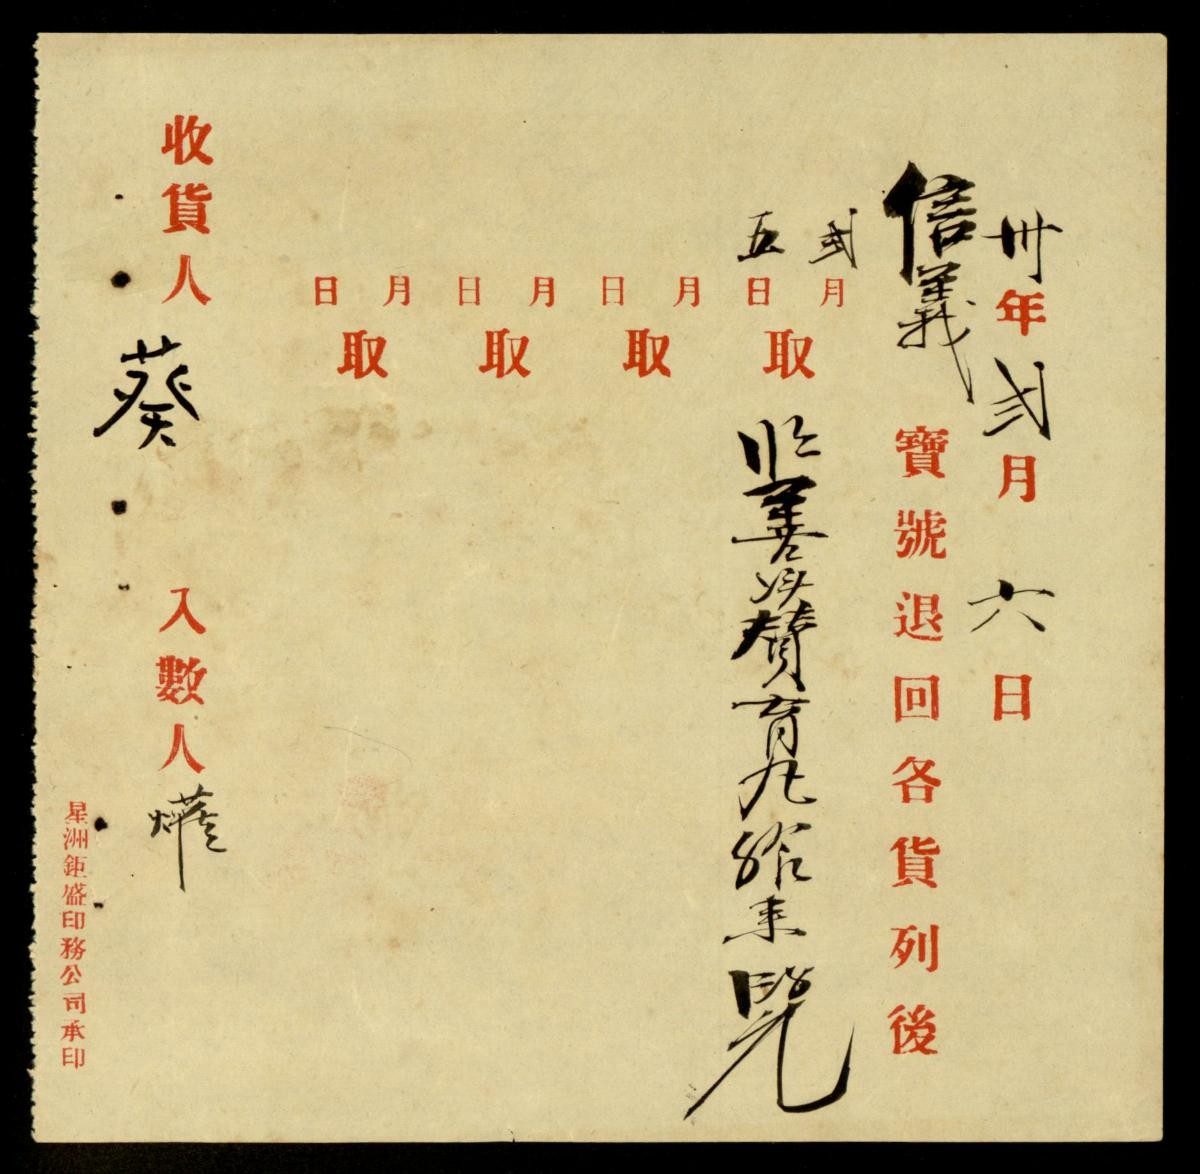 卅年弍月六日
信義寶號退回各貨列後
弍月五日取
善 贊育丸
月日取
月日取
月日取
收貨人 葵 入數人
星洲鉅盛印務公司承印